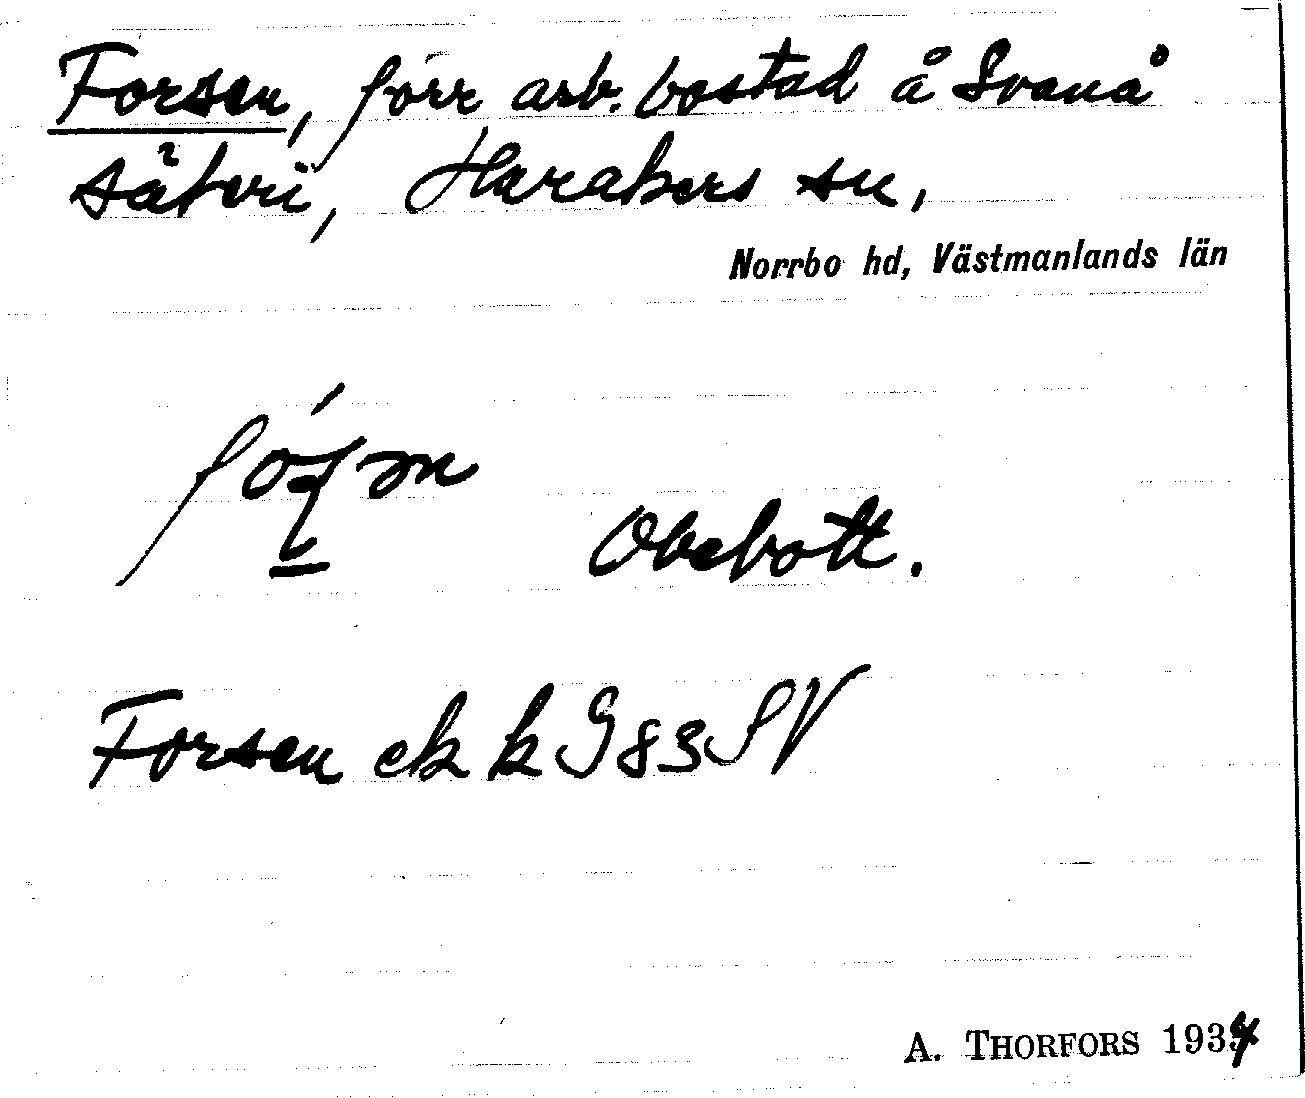 Forsen, förr arb. bostad å Svanå
säteri, Harakers sn,
Norrbo hd, Västmanlands län
Obebott.
Forsen ek k G 83 SV
A. THORFORS 1934